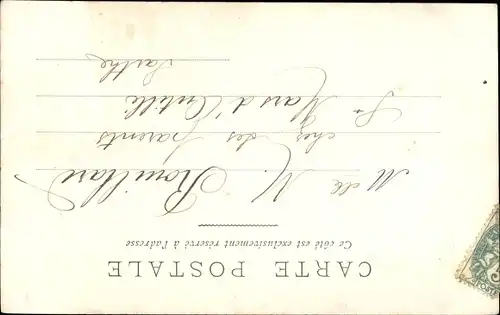 CARTE POSTALE
Ce côté est exclusivement réservé à l'adresse
M de M. Rouillard
chez des parents
St Mars d'Outillé
Sarthe